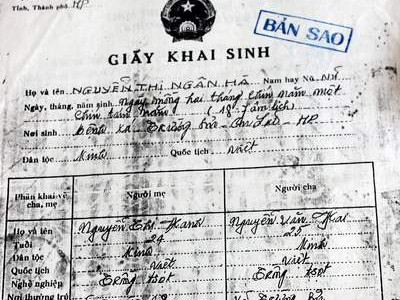 Tỉnh, Thành phố HP
BẢN SAO
GIẤY KHAI SINH
Họ và tên NGUYỄN THỊ NGÂN HÀ Nam hay Nữ Nữ
Ngày, tháng, năm sinh Ngày mồng hai tháng chín năm một
chín tám năm
Nơi sinh xá HP
Dân tộc Kinh Quốc tịch Việt
Phần khai về cha, mẹ Người mẹ Người cha
Họ và tên Nguyễn Thị Nguyễn Văn
Tuổi 24 25
Dân tộc Kinh Kinh
Quốc tịch Việt Việt
Nghề nghiệp Trồng Trồng
Nơi thường trú